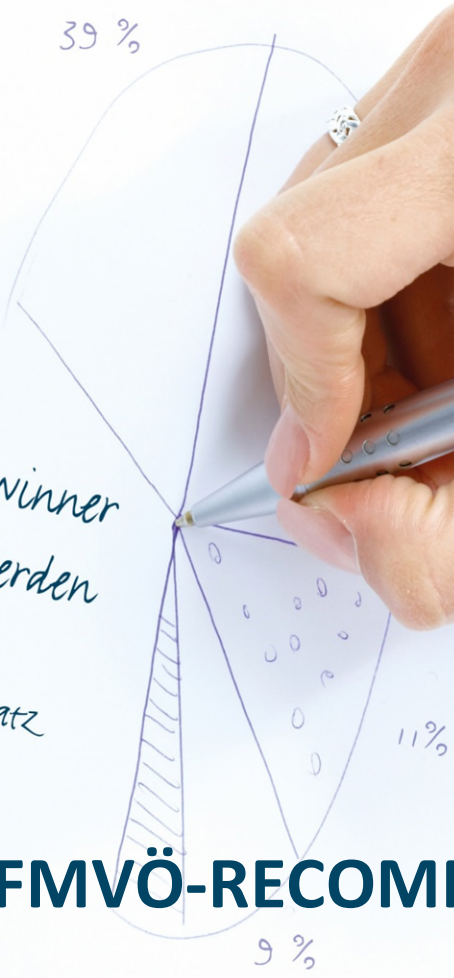 39 %
winner
erden
atz
11%
FMVÖ-RECOM
9 %